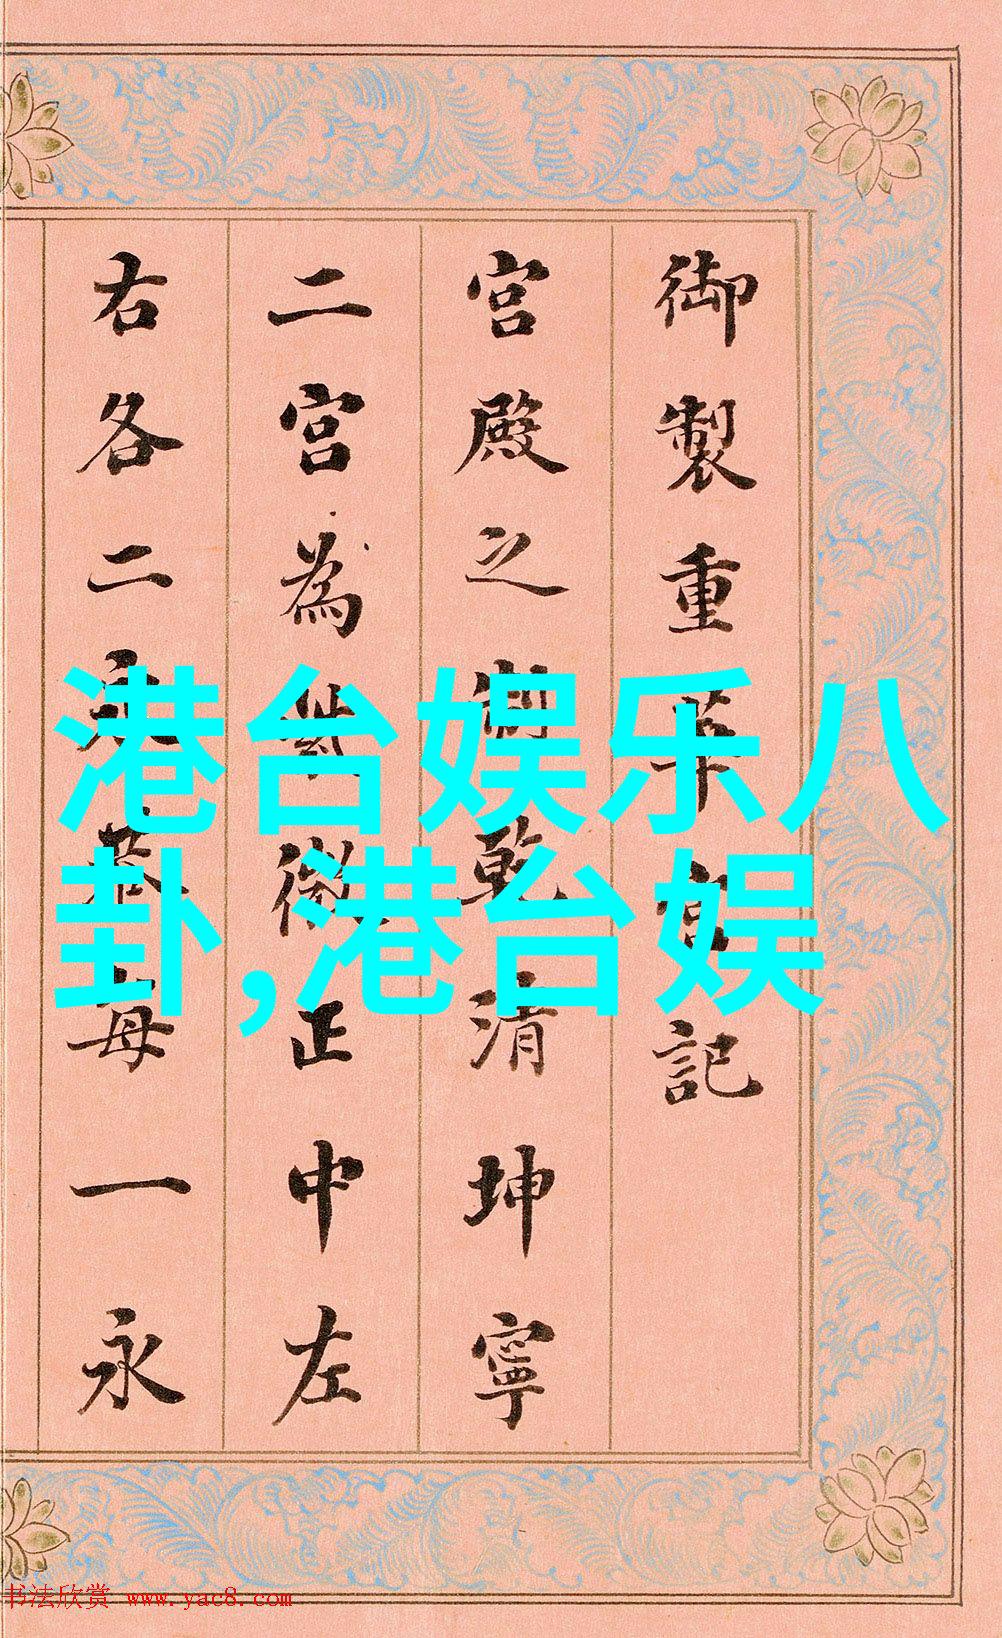 御製重華宮記
宮殿之制乾清坤寧
二宮為紫微正中左
右各二永巷每一永
港台娱乐八
卦,港台娱
书法欣赏 www.yac8.com